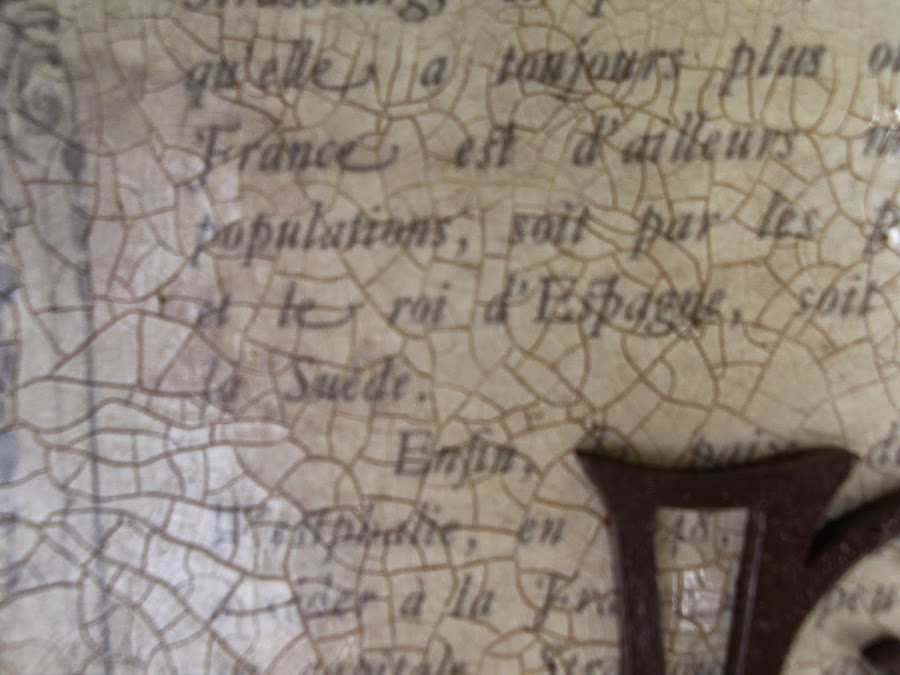 qu'elle a toujours plus
France est d'ailleurs
populations, soit par les
et le roi d'Espagne, soit
la Suède.
Enfin, paix
Westphalie, en 48,
à la
capitale